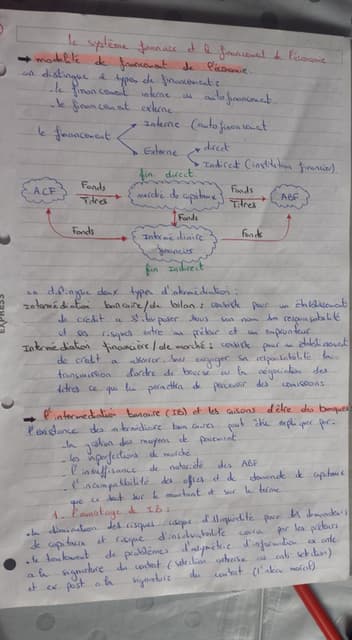 le système financier et le financement de l'économie
→ modalité de financement de l'économie
on distingue 2 types de financement :
- le financement interne ou autofinancement
- le financement externe
le financement
Interne (autofinancement)
Externe
direct
Indirect (institution financière)
fin direct
ACF
Fonds
Titres
marché de capitaux
Fonds
Titres
ABF
Fonds
Fonds
Intermédiaire
financier
Fonds
fin indirect
on distingue deux types d'intermédiation :
Intermédiation bancaire / de bilan : consiste pour un établissement
de crédit a s'interposer sous son nom sa responsabilité
et ses risques entre un prêteur et un emprunteur
Intermédiation financière / de marché : consiste pour un établissement
de crédit a sans engager sa responsabilité la
transmission d'ordre de bourse ou la négociation des
titres ce qui lui permettra de percevoir des commissions
→ l'intermédiation bancaire (IB) et les raisons d'être des banques
l'existence des intermédiaires bancaires peut être expliquer par :
- la gestion des moyens de paiement
- les imperfections de marché
- l'insuffisance de notoriété des ABF
- l'incompatibilité des offres et de demande de capitaux
que ce soit sur le montant et sur le terme
1. l'avantage de IB :
• la diminution des risques risque d'illiquidité pour les demandeurs
de capitaux et risque d'insolvabilité couru par les prêteurs
• le traitement de problèmes d'asymétrie d'information ex ante
a la signature du contrat (sélection adverse ou anti sélection)
et ex post a la signature du contrat (l'aléa moral)
EXPRESS